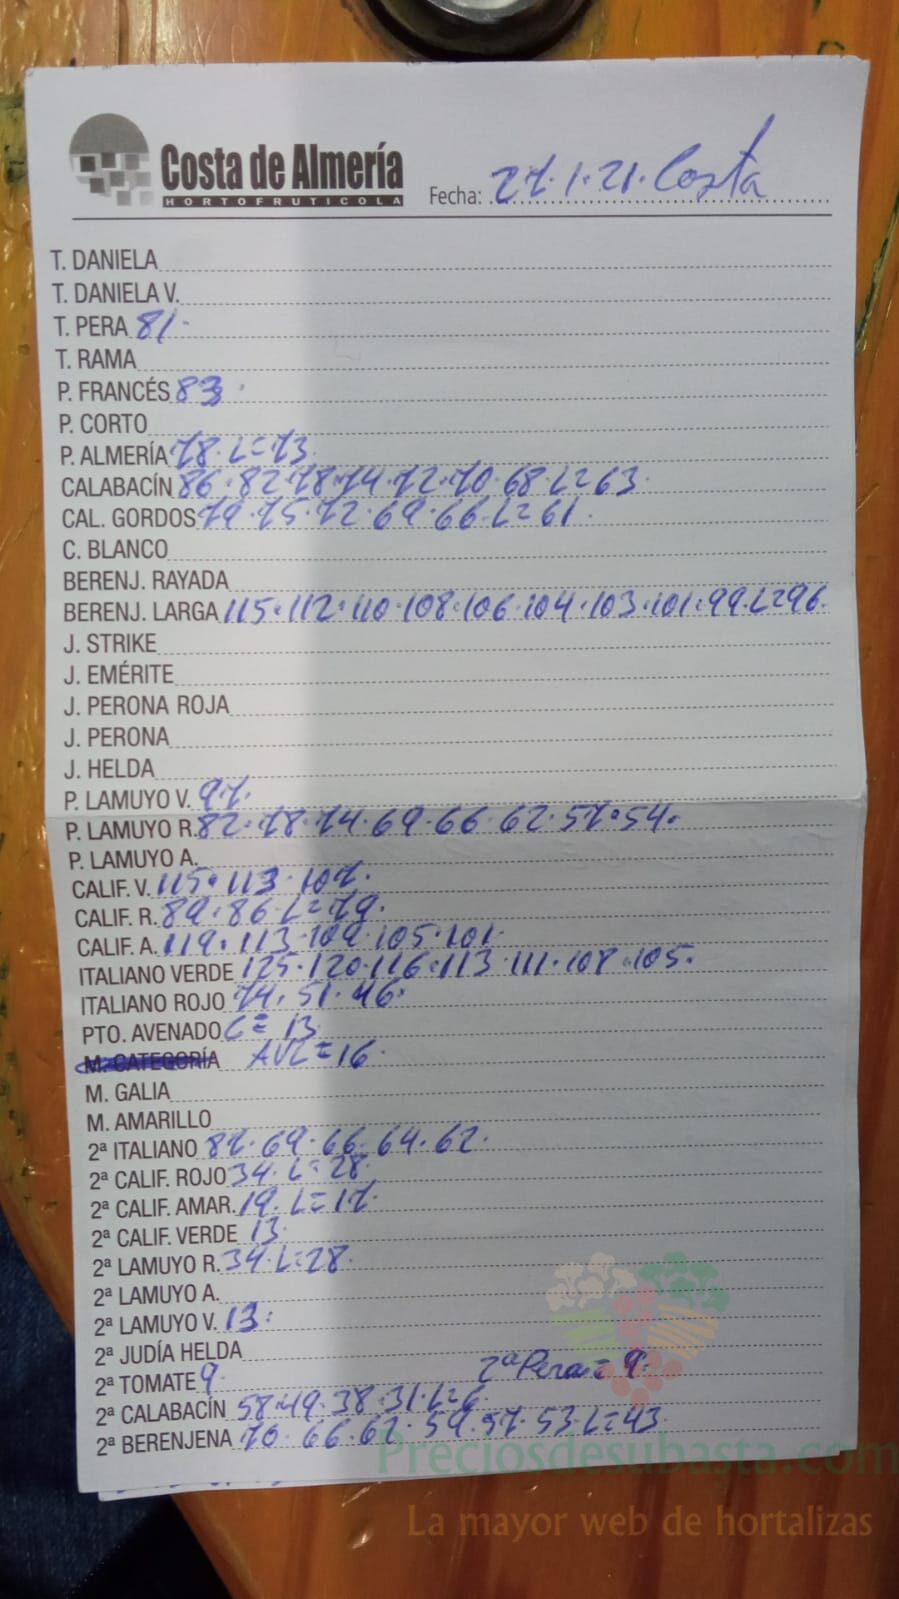 Costa de Almería
HORTOFRUTICOLA
Fecha: 27.1.21. Costa
T. DANIELA
T. DANIELA V.
T. PERA 81.
T. RAMA
P. FRANCÉS 83.
P. CORTO
P. ALMERÍA 78. L=73
CALABACÍN 86.82.78.74.72.70.68.L=63.
CAL. GORDOS 79.75.72.69.66.L=61.
C. BLANCO
BERENJ. RAYADA
BERENJ. LARGA 115.112.110.108.106.104.103.101.99.L=96.
J. STRIKE
J. EMÉRITE
J. PERONA ROJA
J. PERONA
J. HELDA
P. LAMUYO V. 97.
P. LAMUYO R. 82.78.74.69.66.62.57.54.
P. LAMUYO A.
CALIF. V. 115.113.107.
CALIF. R. 89.86.L=79.
CALIF. A. 119.113.109.105.101.
ITALIANO VERDE 125.120.116.113.111.108.105.
ITALIANO ROJO 74.51.46.
PTO. AVENADO C=13
M. CATEGORÍA AVL=16.
M. GALIA
M. AMARILLO
2ª ITALIANO 87.69.66.64.62.
2ª CALIF. ROJO 34.L=28.
2ª CALIF. AMAR. 19.L=17.
2ª CALIF. VERDE 13.
2ª LAMUYO R. 34.L=28.
2ª LAMUYO A.
2ª LAMUYO V. 13.
2ª JUDÍA HELDA
2ª TOMATE 9. 2ª Pera=9.
2ª CALABACÍN 58.49.38.31.L=6.
2ª BERENJENA 70.66.62.59.57.53.L=43.
Preciosdesubasta.com
La mayor web de hortalizas